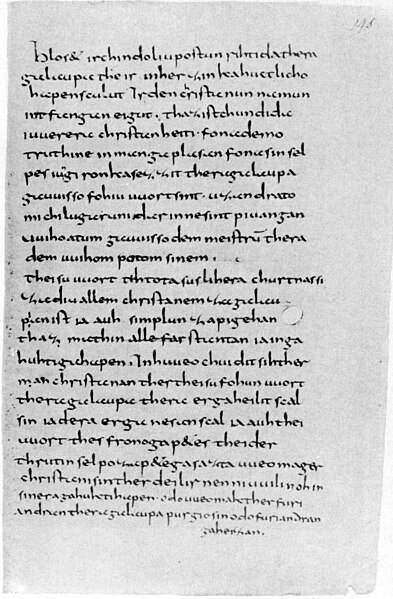 Hloset ir chindo liupostun rihtida thera
galaupa the ir in herzin kahuctlicho
hapen sculut Ir den christanun namun
intfangan eigut · thaz ist chundida
iuuerera christanheiti · fona demo
truhtine in man gaplasan fona sin sel
pes iungiron kasezzit thera galaupa
gauuisso fohiu uuort sint · uzan drato
michilu garuni dar inne sint piuangan
uuiho atum gauuisso dem meistrun thera
dem uuihom potom sinem ·
theisu uuort thtota suslihera churtnassi
za diu allem christanem za galau
penne ist ia auh simplun za pigehan
thaz mathin alle farstantan ia in ga
huhti gahapen · In huueo chuidit sih ther
man christanan ther theisu fohun uuort
thera galaupa thera er gaheilit scal
sin ia dera er ganesan scal ia auh thei
uuort thes fronogapetes thei der
truhtin selpo za gapete gasazta uueo mag er
christani sin ther dei lirnen niuuili noh in
sinera gahuhti hapen · odo uueo mak ther furi
andran thera galaupa purgio sin odo furi andran
gaheizan ·